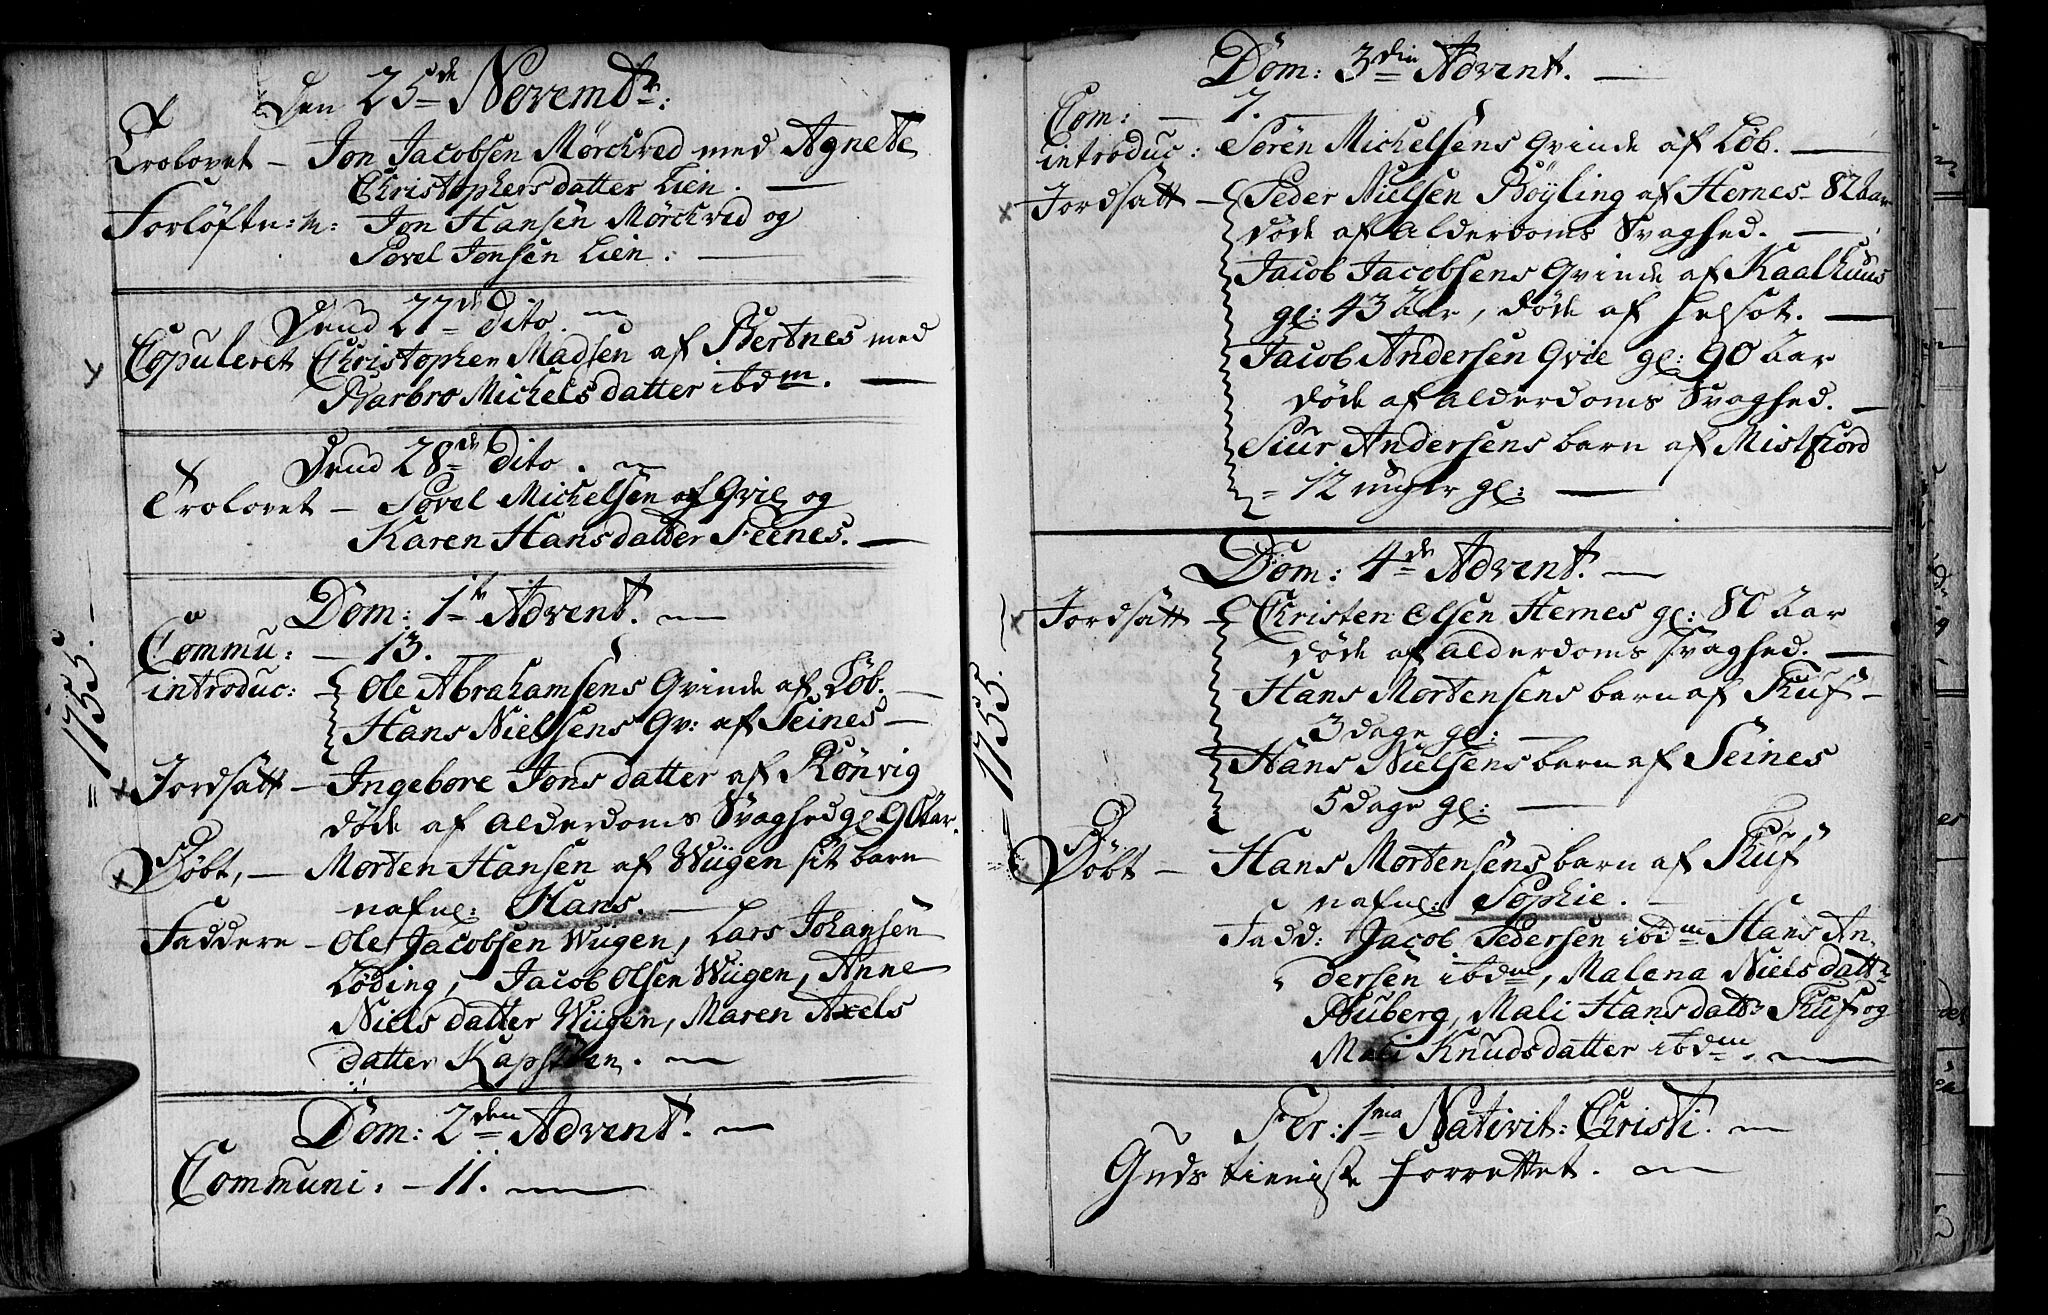 Den 25de Novembr:
Trolovet – Jon Jacobsen Mörchved med Agnete
Christophersdatter Lien. —
Forløftn: m: Jon Hansen Mörchved og
Povel Jonsen Lien. —
Dend 27de Dito. —
Copuleret Christopher Madsen af Bertnes med
Barbro Michelsdatter ibdm. —
Dend 28de Dito. —
Trolovet – Povel Michelsen af Qvie og
Karen Hansdatter Seenes. —
Dom: 1te Advent. —
Commu: — 13.
introduc: – Ole Abrahamsens Qvinde af Løb. —
Hans Nielsens Qv: af Seines —
= 1755. —
Jordsatt – Ingebore Jonsdatter af Rönvig
døde af Alderdoms Svaghed gl 90 Aar.
Døbt, — Morten Hansen af Wiigen sit barn
nafnl: Hans. —
Faddere – Ole Jacobsen Wiigen, Lars Johansen
Løding, Jacob Olsen Wiigen, Anne
Nielsdatter Wiigen, Maren Axels
datter . —
Dom: 2den Advent. —
Communi: – 11. —
Dom: 3die Advent. —
Com: — 7. —
introduc: Sören Michelsens Qvinde af Løb. —
Jordsatt – Peder Nielsen Böyling af Hernes – 82 Aar
døde af Alderdoms Svaghed. —
Jacob Jacobsens Qvinde af Kaalhuus
gl: 43 Aar, døde af Helsot. —
Jacob Andersen Qvie gl: 90 Aar
døde af Alderdoms Svaghed. —
Siur Andersens barn af Mistfiord
= 12 uuger gl: —
Dom: 4de Advent. —
Jordsatt – Christen Olsen Hernes gl: 80 Aar
døde af Alderdoms Svaghed. —
Hans Mortensens barn af —
3 dage gl: —
Hans Nielsens barn af Seines
5 dage gl: —
= 1755. —
Døbt – Hans Mortensens barn af
nafnl: Sophie. —
Fadd: Jacob Pedersen ibdm Hans An-
dersen ibdm, Malena Nielsdattr
, Mali Hansdattr og
Mali Knudsdatter ibdm. —
Fer: 1ma Nativit: Christi. —
Guds tieniste forrettet. —